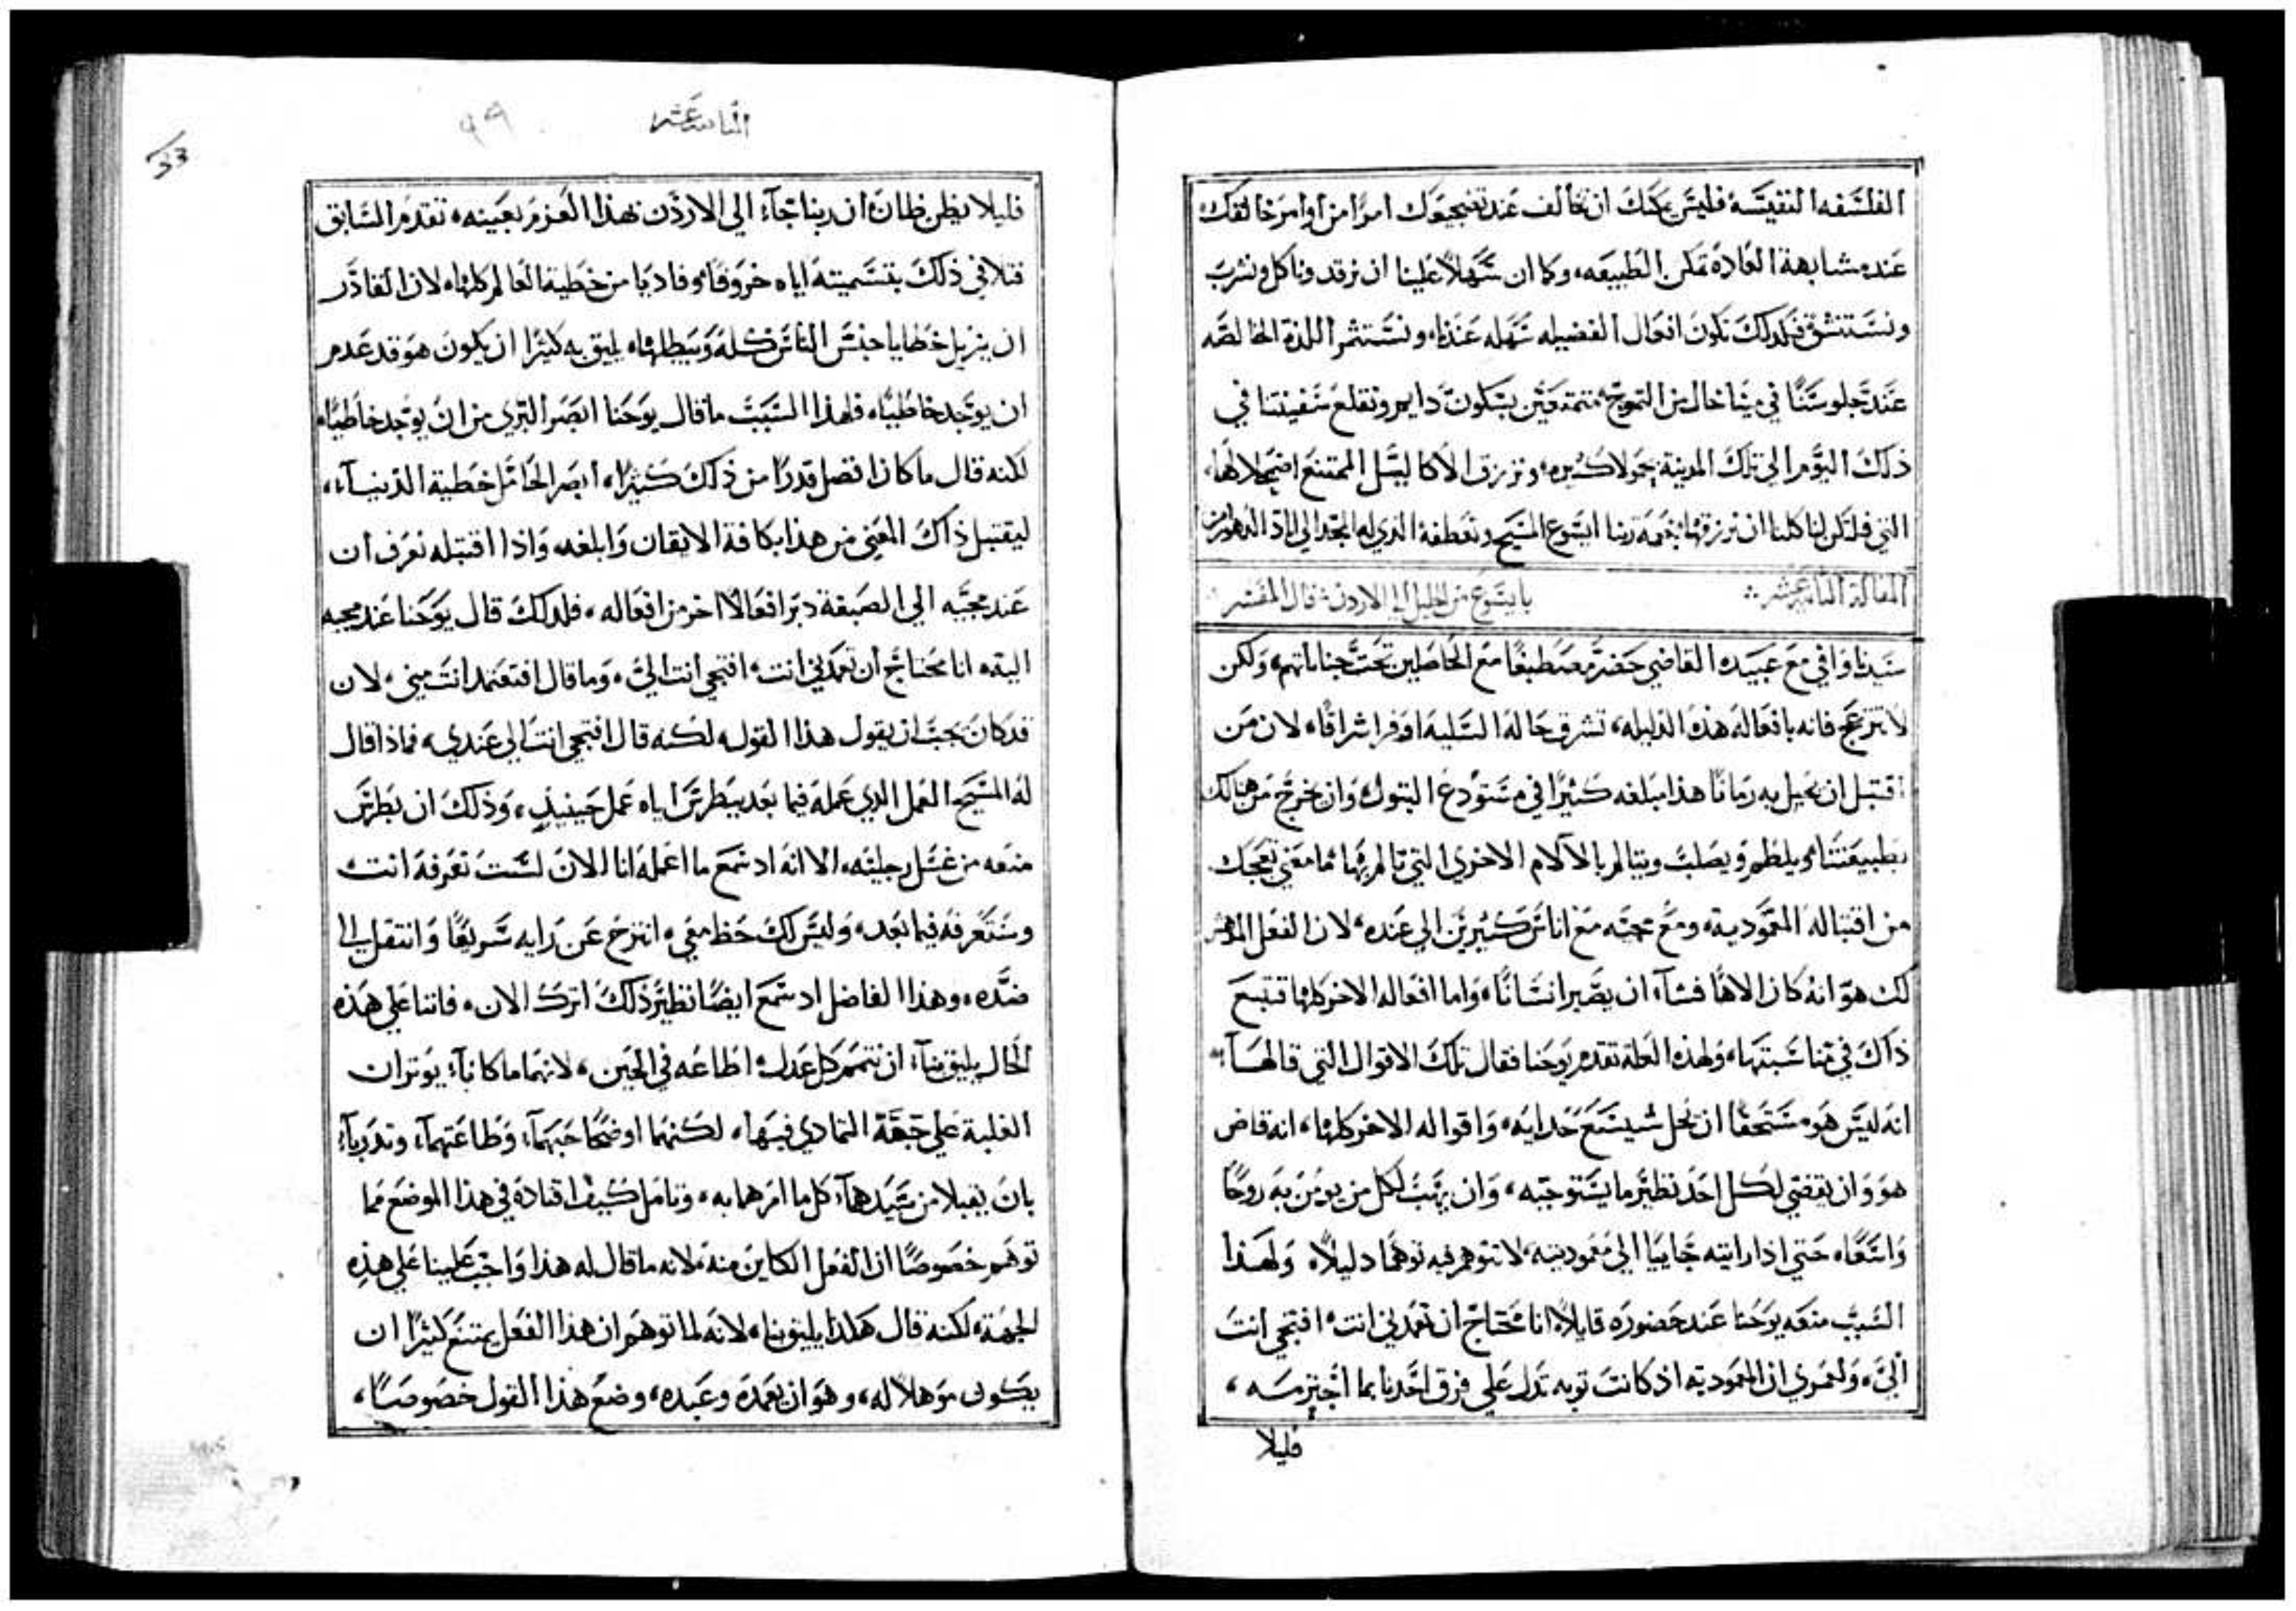 الفلسفه النفيسه فليس يمكنك ان تخالف عند تضجيعك امرًا من اوامر خالقك
عنده مشابهة العاده تمكن الطبيعه، وكما ان سهلاً علينا ان نرقد وناكل ونشرب
ونستنشق فلذلك تكون افعال الفضيله سهله عندنا، ونستثمر اللذة الخالصه
عند جلوسنا في مينا خال من التموج متمتعين بسكون دايم ونقلع سفينتنا في
ذلك اليوم الي تلك المدينة بحمولات كثيره ونرزق الاكاليل الممتنع اضمحلالها،
التي فليكن لنا كلنا ان نرزقها بنعمة ربنا ايسوع المسيح وتعطفه الذي له المجد الي اباد الدهور امين
المقالة الثانية عشر
يا يسوع من الجليل الي الاردن قال المفسر
سيدنا وافي مع عبيده القاضي حضر مصطبغًا مع الحاصلين تحت جناياتهم، ولكن
لا تنزعج فانه بافعاله هذه الذليله، تشرق حاله السليه اوفر اشراقًا، لان من
اقتبل ان يحبل به زمانًا هذا مبلغه كثيرًا في مستودع البتول وان يخرج من هنالك
بطبيعتنا ويلطم ويصلب ويتالم بالالام الاخري التي تالم بها فما معني تعجبك
من اقتباله المعموديه، ومع مجيه مع اناس كثيرين الي عنده لان الفعل المدهش
لك هو انه كان الاهًا فشآء ان يصير انسانًا، واما افعاله الاخر كلها فتتبع
ذاك في مناسبتها، ولهذه العله تقدم يوحنا فقال تلك الاقوال التي قالهآ
انه ليس هو مستحقًا ان يحل شيسع حذايه، واقواله الاخر كلها، انه قاض
هو وان يقضي لكل احد نظير ما يستوجبه، وان يهب لكل من يومن به روحًا
واسعًا، حتي اذا رايته جاييا الي معموديته لا تتوهم فيه توهمًا ذليلاً، ولهذا
السبب منعه يوحنا عند حضوره قايلاً انا محتاج ان تعمدني انت افتجي انت
اليّ، ولعمري ان المعموديه اذ كانت توبه تدل علي فرق احدنا بما اجترمه،
قليلا
الثانيه عشر
٩٩
33
قليلا يظن ظان ان ربنا جآء الي الاردن بهذا العزم بعينه، تقدم السابق
فتلافي ذلك بتسميته اياه خروفًا وفاديًا من خطية العالم كلها، لان القادر
ان يزيل خطايا جنس الناس كله ويبطلها، يليق به كثيرًا ان يكون هو قد عدم
ان يوجد خاطيًا، فلهذا السبب ما قال يوحنا ابصر البري من ان يوجد خاطيًا
لكنه قال ما كان افضل قدرًا من ذلك كثيرًا، ابصر الحامل خطية الدنيآ،
ليقتبل ذاك المعني من هذا بكافة الايقان وابلغه، واذا اقتبله تعرف ان
عند مجيه الي الصبغة دبر افعالاً اخر من افعاله، فلذلك قال يوحنا عند مجيه
اليه، انا محتاج ان تعمدني انت، افتجي انت اليّ، وما قال افتعتمد انت مني، لان
قد كان يجب ان يقول هذا القول، لكنه قال افتجي انت الي عندي، فماذا قال
له المسيح العمل الذي عمله فيما بعد ببطرس اياه عمل حينيذٍ، وذلك ان بطرس
منعه من غسل رجليه، الا انه اذ سمع ما اعمله انا الان لست تعرفه انت
وستعرفه فيما بعد، وليس لك حظ معي، انتزح عن رايه سريعًا وانتقل الي
ضده، وهذا الفاضل اذ سمع ايضًا نظير ذلك اترك الان، فاننا علي هذه
الحال يليق بنآ، ان نتمم كل عدل، اطاعه في الحين، لانهما ما كانآ، يوثران
الغلبة علي جهة التمادي فيها، لكنهما اوضحا حبهمآ، وطاعتهمآ، وتدربآ
بان يقبلا من سيدهمآ، كل ما امرهما به، وتامل كيف اقتاده في هذا الموضع مما
توهم خصوصًا ان الفعل الكاين منه، لانه ما قال له هذا واجب علينا علي هذه
الجهة، لكنه قال هكذا يليق بنا، لانه لما توهم ان هذا الفعل يمتنع كثيرًا ان
يكون موهلاً له، وهو ان يعمده وعبده، وضع هذا القول خصوصًا،